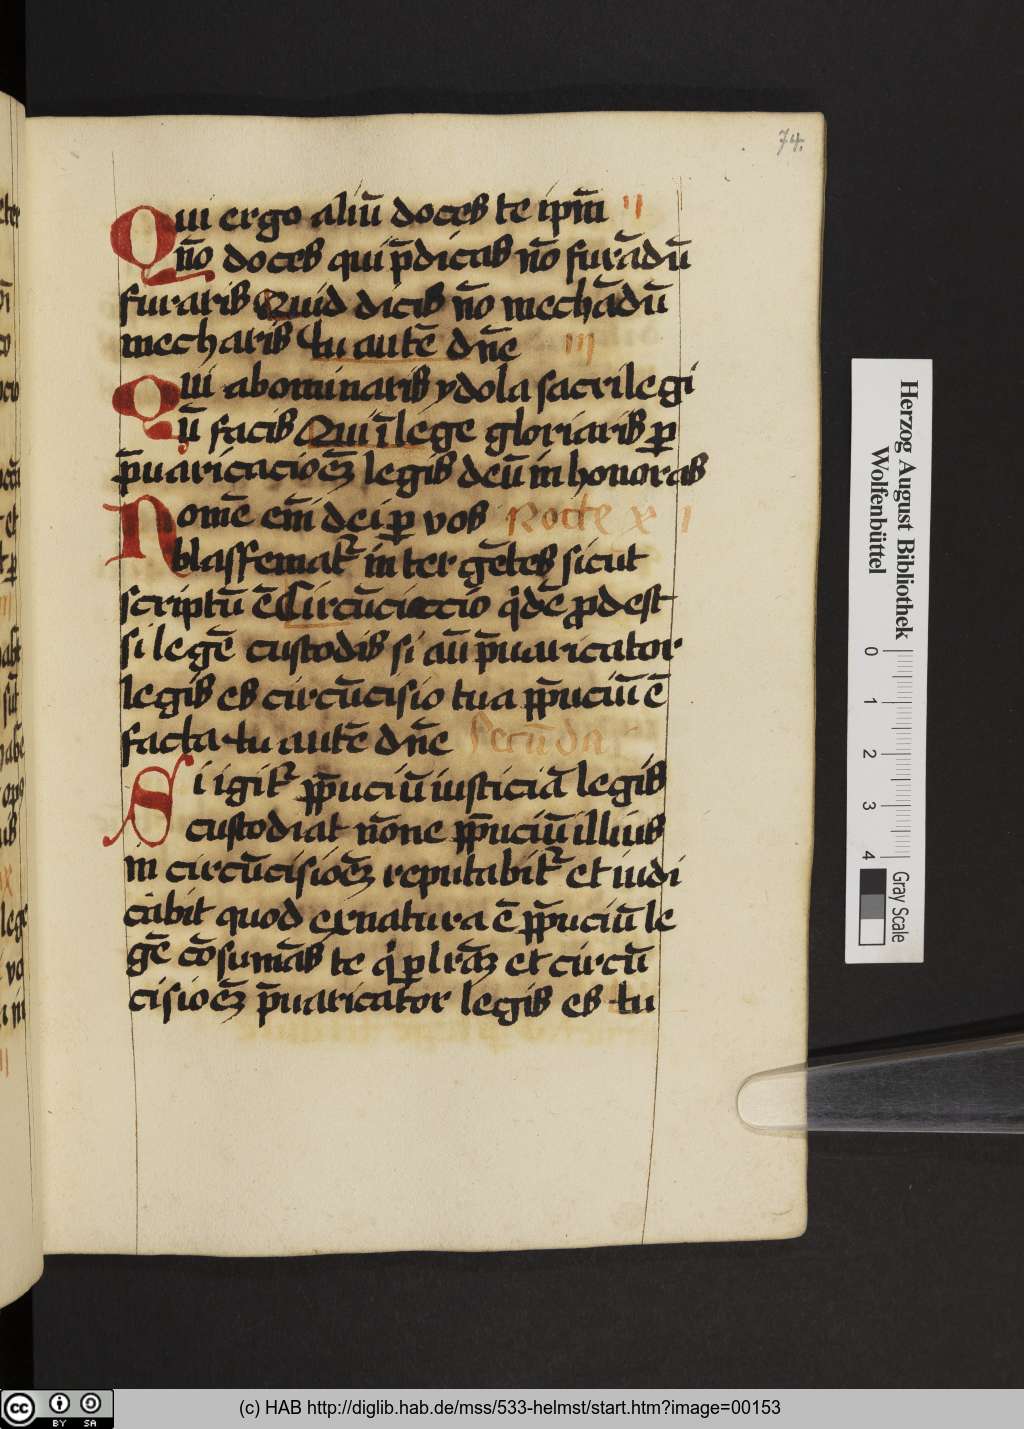 74.
Qui ergo aliū doces te ip̄m ii
n̄o doces qui p̄dicas n̄o furādū
furaris Quid dicis n̄o mechādū
mecharis tu autē dn̄e iii
Qui abominaris ydola sacrilegi
ū facis Qui ī lege gloriaris ꝑ
p̄uaricacioēꝫ legis deū in honoras
Nomē em̄ dei ꝑ vos Nocte x i
blasfemat᷑ in ter gētes sicut
scriptū ē Circūciccio qͥdē ꝓdest
si legē custodis si aū p̄uaricator
legis es circūcisio tua pp̄uciū ē
facta tu autē dn̄e Secūda
Si igit᷑ pp̄uciū iusticiā legis
custodiat nōne pp̄uciū illius
in circūcisioēꝫ reputabit᷑ et iudi
cabit quod ex natura ē pp̄uciū le
gē cōsumās te qͥ ꝑ lr̄aꝫ et circū
cisioēꝫ p̄uaricator legis es tu
Herzog August Bibliothek
Wolfenbüttel
0 1 2 3 4
Gray Scale
(c) HAB http://diglib.hab.de/mss/533-helmst/start.htm?image=00153
cc BY SA